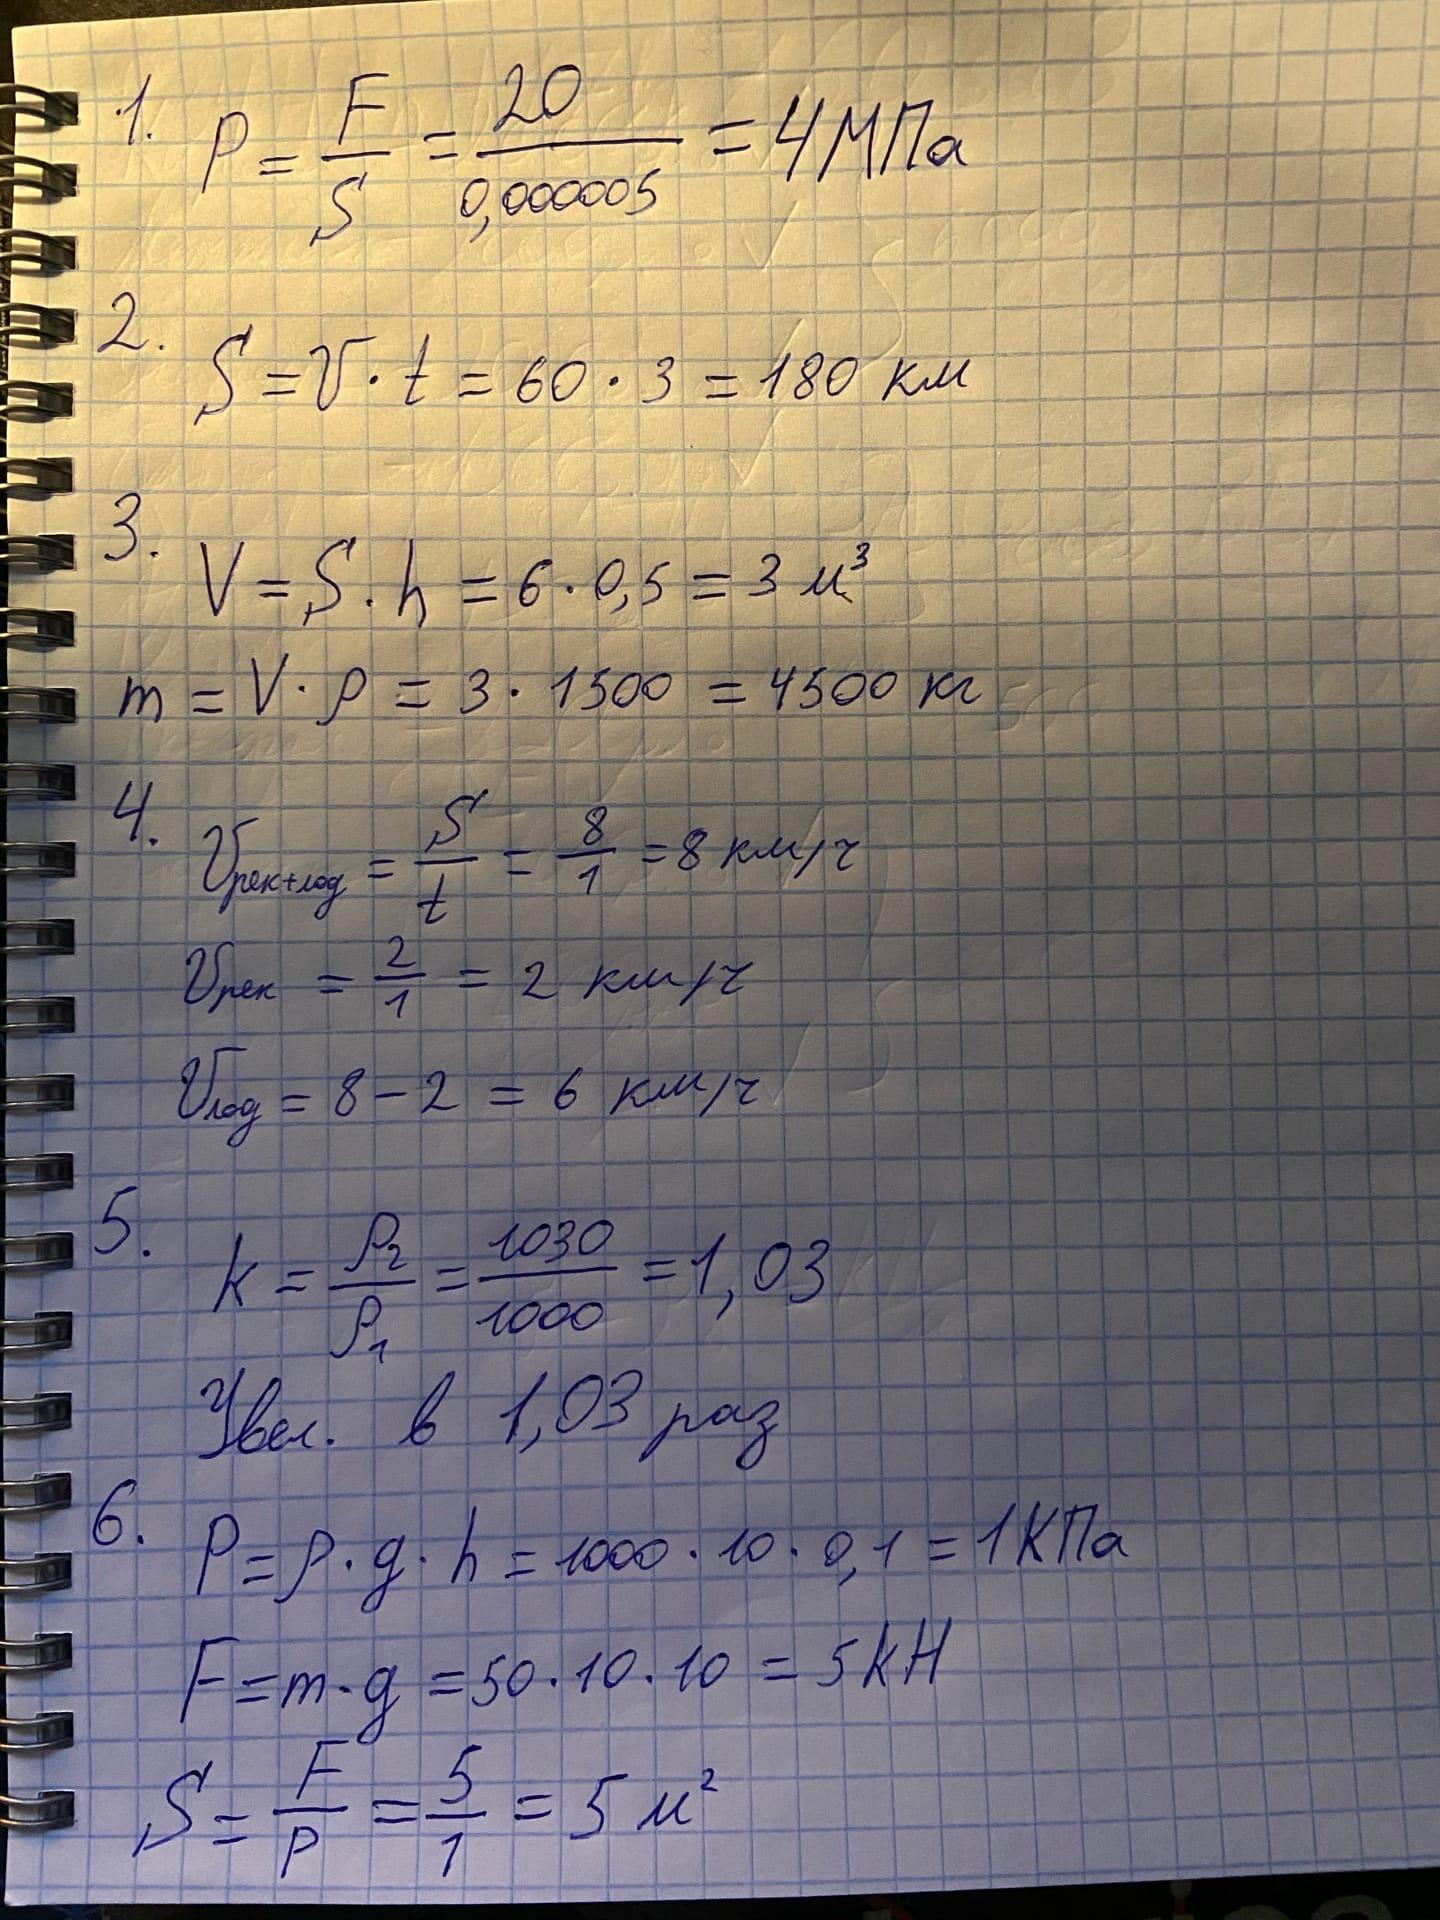 1. P = F/S = 20/0,000005 = 4 МПа
2. S = V · t = 60 · 3 = 180 км
3. V = S · h = 6 · 0,5 = 3 м³
m = V · ρ = 3 · 1500 = 4500 кг
4. Vрек+лод = S/t = 8/1 = 8 км/ч
Vрек = 2/1 = 2 км/ч
Vлод = 8 - 2 = 6 км/ч
5. k = ρ₂/ρ₁ = 1030/1000 = 1,03
Увел. в 1,03 раз
6. P = ρ · g · h = 1000 · 10 · 0,1 = 1 КПа
F = m · g = 50 · 10 · 10 = 5 кН
S = F/P = 5/1 = 5 м²